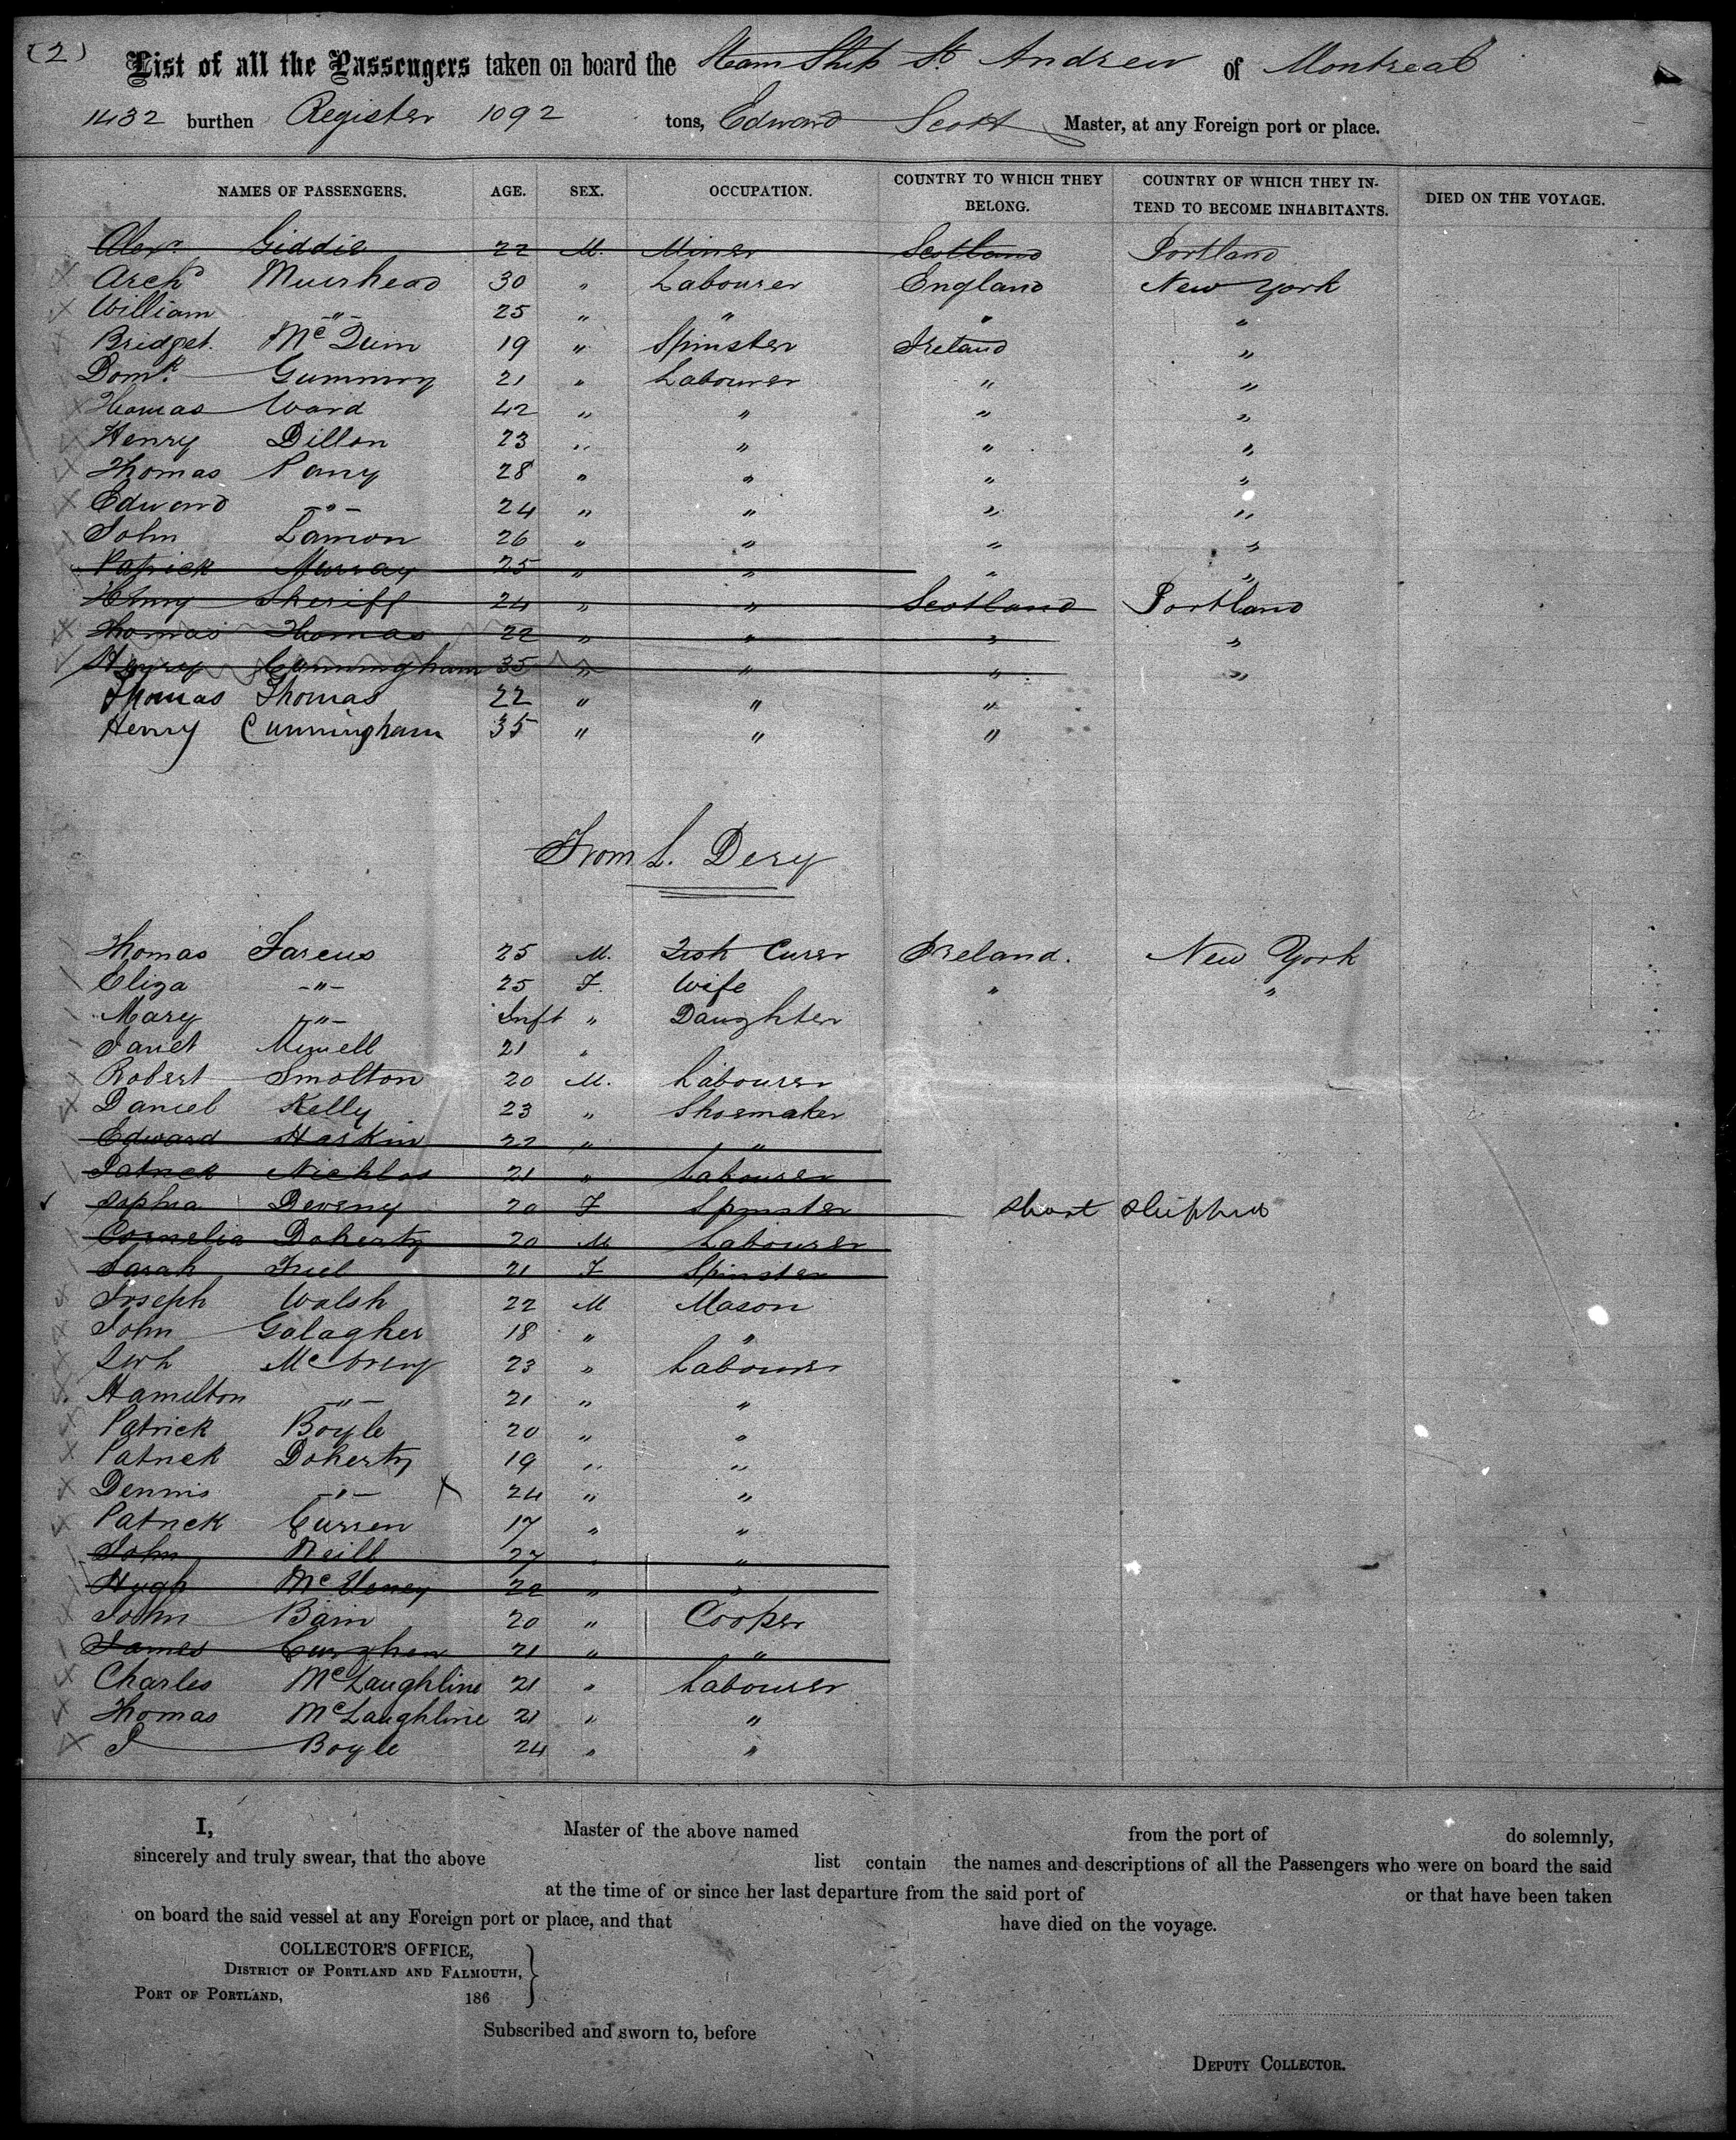 (2)
List of all the Passengers taken on board the Steam Ship St Andrew of Montreal
1432 burthen Register 1092 tons, Edward Scott Master, at any Foreign port or place.
NAMES OF PASSENGERS. AGE. SEX. OCCUPATION. COUNTRY TO WHICH THEY BELONG. COUNTRY OF WHICH THEY INTEND TO BECOME INHABITANTS. DIED ON THE VOYAGE.
Alexr. Giddie 22 M. Miner Scotland Portland
Archd Muirhead 30 " Labourer England New York
William -"- 25 " " " "
Bridget. McQuin 19 " Spinster Ireland "
Domk. 21 " Labourer " "
Thomas Ward 42 " " " "
Henry Dillon 23 " " " "
Thomas 28 " " " "
Edward -"- 24 " " " "
John Lamon 26 " " " "
Patrick Murray 25 " " " "
Henry Sheriff 24 " " Scotland Portland
Thomas Thomas 22 " " " "
Henry Cunningham 35 " " " "
Thomas Thomas 22 " " "
Henry Cunningham 35 " " "
From L. Dery
Thomas Farcus 25 M. Fish Curer Ireland. New York
Eliza -"- 25 F. Wife " "
Mary -"- Inft " Daughter
Janet 21 "
Robert Smolton 20 M. Labourer
Daniel Kelly 23 " Shoemaker
Edward Haskin 22 " "
Patrick Nichlos 21 " Labourer
Deveny 20 F Spinster short shipped
Cornelia Doherty 20 M Labourer
Sarah Friel 21 F Spinster
Joseph Walsh 22 M Mason
John Galagher 18 " "
23 " Labourer
Hamilton -"- 21 " "
Patrick Boyle 20 " "
Patrick Doherty 19 " "
Dennis -"- 24 " "
Patrick Curren 17 " "
John Neill 27 " "
Hugh 22 " "
John Bain 20 " Cooper
James 21 " "
Charles McLaughline 21 " Labourer
Thomas McLaughline 21 " "
J Boyle 24 " "
I, Master of the above named from the port of do solemnly,
sincerely and truly swear, that the above list contain the names and descriptions of all the Passengers who were on board the said
at the time of or since her last departure from the said port of or that have been taken
on board the said vessel at any Foreign port or place, and that have died on the voyage.
COLLECTOR'S OFFICE,
DISTRICT OF PORTLAND AND FALMOUTH,
PORT OF PORTLAND, 186
Subscribed and sworn to, before
DEPUTY COLLECTOR.